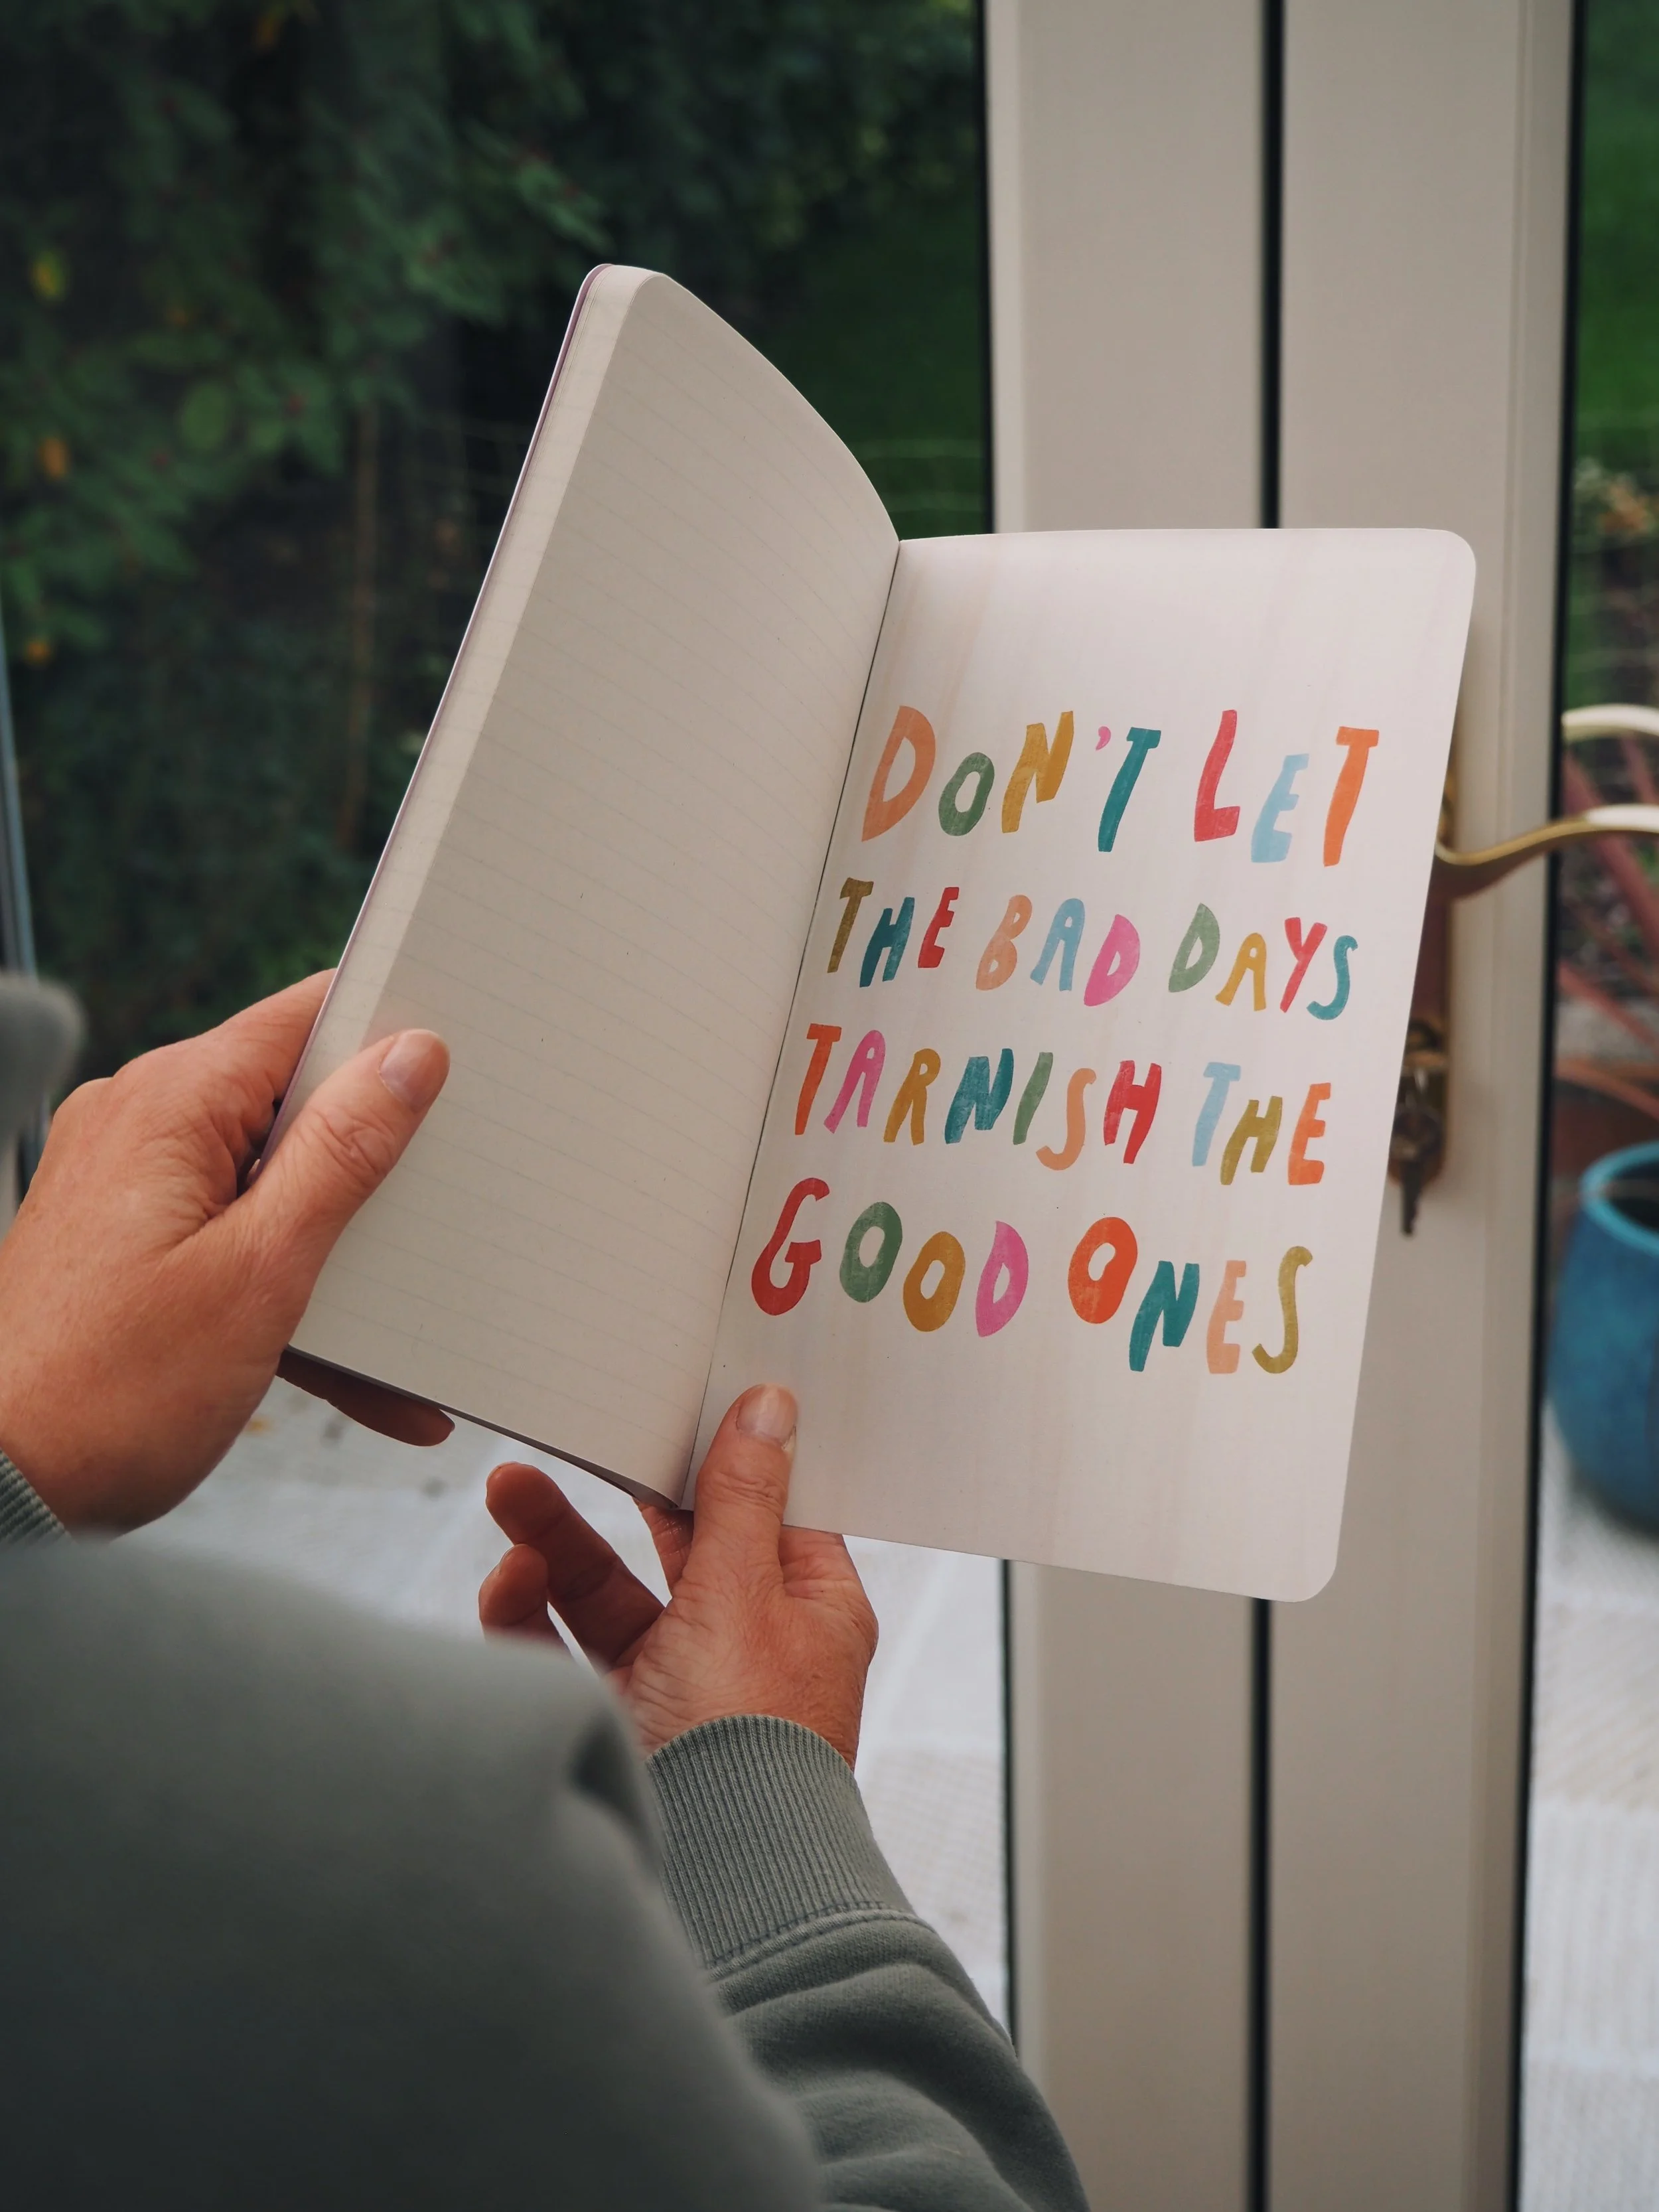 DON'T LET
THE BAD DAYS
TARNISH THE
GOOD ONES